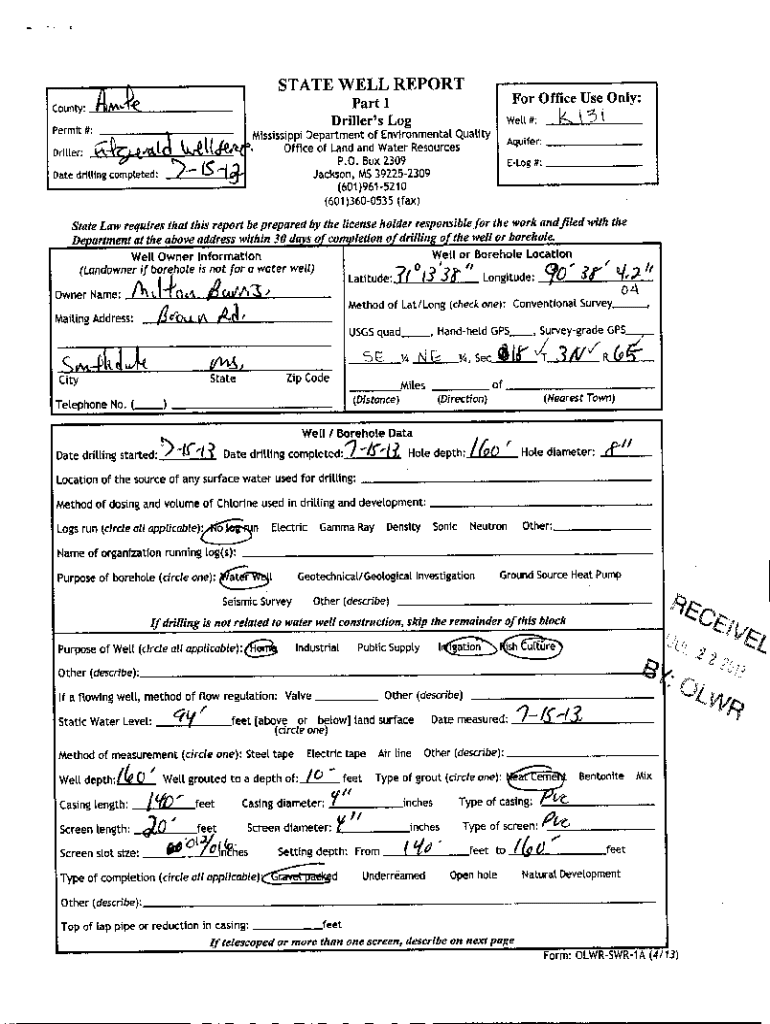 STATE WELL REPORT
Part 1
Driller's Log
Mississippi Department of Environmental Quality
Office of Land and Water Resources
P.O. Box 2309
Jackson, MS 39225-2309
(601)961-5210
(601)360-0535 (fax)
County: Amite
Permit #:
Driller: Fitzgerald Well Serv.
Date drilling completed: 7-15-13
For Office Use Only:
Well #: K131
Aquifer:
E-Log #:
State Law requires that this report be prepared by the license holder responsible for the work and filed with the
Department at the above address within 30 days of completion of drilling of the well or borehole.
Well Owner Information
(Landowner if borehole is not for a water well)
Owner Name: Milton
Mailing Address: Brown Rd.
Smithdale Ms,
City State Zip Code
Telephone No. (____)
Well or Borehole Location
Latitude: 31° 13' 38" Longitude: 90° 38' 4.2"
04
Method of Lat/Long (check one): Conventional Survey____,
USGS quad____, Hand-held GPS____, Survey-grade GPS____
SE ¼ NE ¼, Sec 18 ✓ T 3N ✓ R 6E
Miles of
(Distance) (Direction) (Nearest Town)
Well / Borehole Data
Date drilling started: 7-15-13 Date drilling completed: 7-15-13 Hole depth: 160' Hole diameter: 8"
Location of the source of any surface water used for drilling:
Method of dosing and volume of Chlorine used in drilling and development:
Logs run (circle all applicable): No log run Electric Gamma Ray Density Sonic Neutron Other:
Name of organization running log(s):
Purpose of borehole (circle one): Water Well Geotechnical/Geological Investigation Ground Source Heat Pump
Seismic Survey Other (describe)
If drilling is not related to water well construction, skip the remainder of this block
Purpose of Well (circle all applicable): Home Industrial Public Supply Irrigation Fish Culture
Other (describe):
If a flowing well, method of flow regulation: Valve Other (describe)
Static Water Level: 94' feet [above or below] land surface Date measured: 7-15-13
(circle one)
Method of measurement (circle one): Steel tape Electric tape Air line Other (describe):
Well depth: 160' Well grouted to a depth of: 10' feet Type of grout (circle one): Neat Cement Bentonite Mix
Casing length: 140' feet Casing diameter: 4" inches Type of casing: Pvc
Screen length: 20' feet Screen diameter: 4" inches Type of screen: Pvc
Screen slot size: 012/016 inches Setting depth: From 140' feet to 160' feet
Type of completion (circle all applicable): Gravel packed Underreamed Open hole Natural Development
Other (describe):
Top of lap pipe or reduction in casing: feet
If telescoped or more than one screen, describe on next page
Form: OLWR-SWR-1A (4/13)
RECEIVED
JUL 22 2013
BY: OLWR